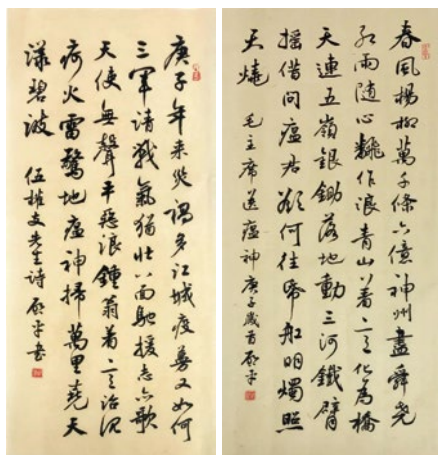 庚子年来災禍多江城疫蔓又如何
三軍請戰氣猶壯八面馳援志亦歌
天使無聲平惡浪鍾翁着意治沉
疴火雷驚地瘟神掃萬里堯天
漾碧波 先生詩 啟平書
春風楊柳萬千條六億神州盡舜堯
紅雨隨心飜作浪青山着意化為橋
天連五嶺銀鋤落地動三河鐵臂
搖借問瘟君欲何往帋船明燭照
天燒 毛主席送瘟神 庚子歲首啟平